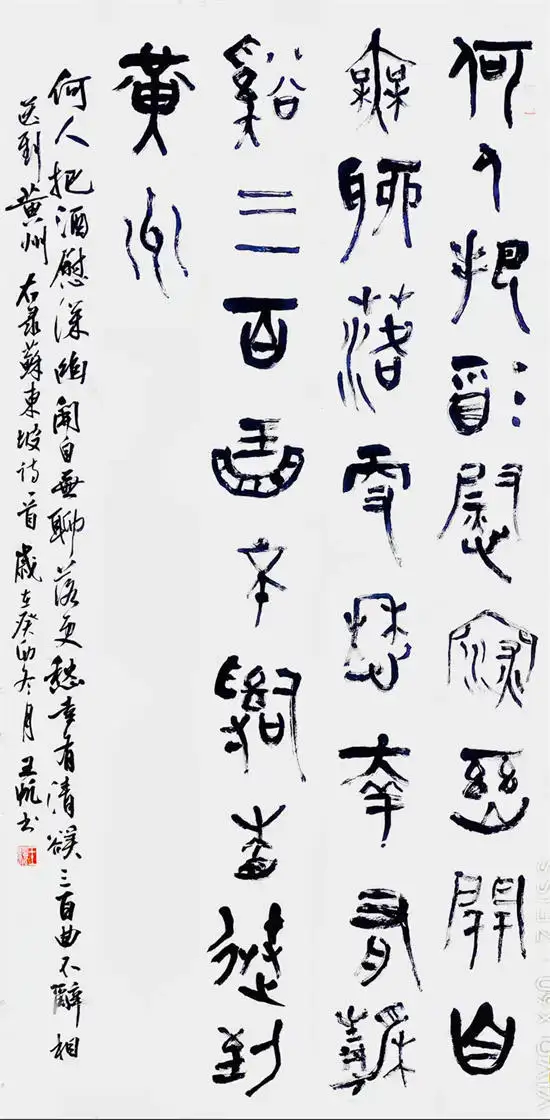 何人把酒慰深幽開自
無聊落更愁幸有清
谿三百曲不辭相送到
黄州
何人把酒慰深幽開自無聊落更愁幸有清谿三百曲不辭相
送到黄州 右录蘇東坡诗一首 歲在癸卯冬月 王书
vivo X90 ZEISS